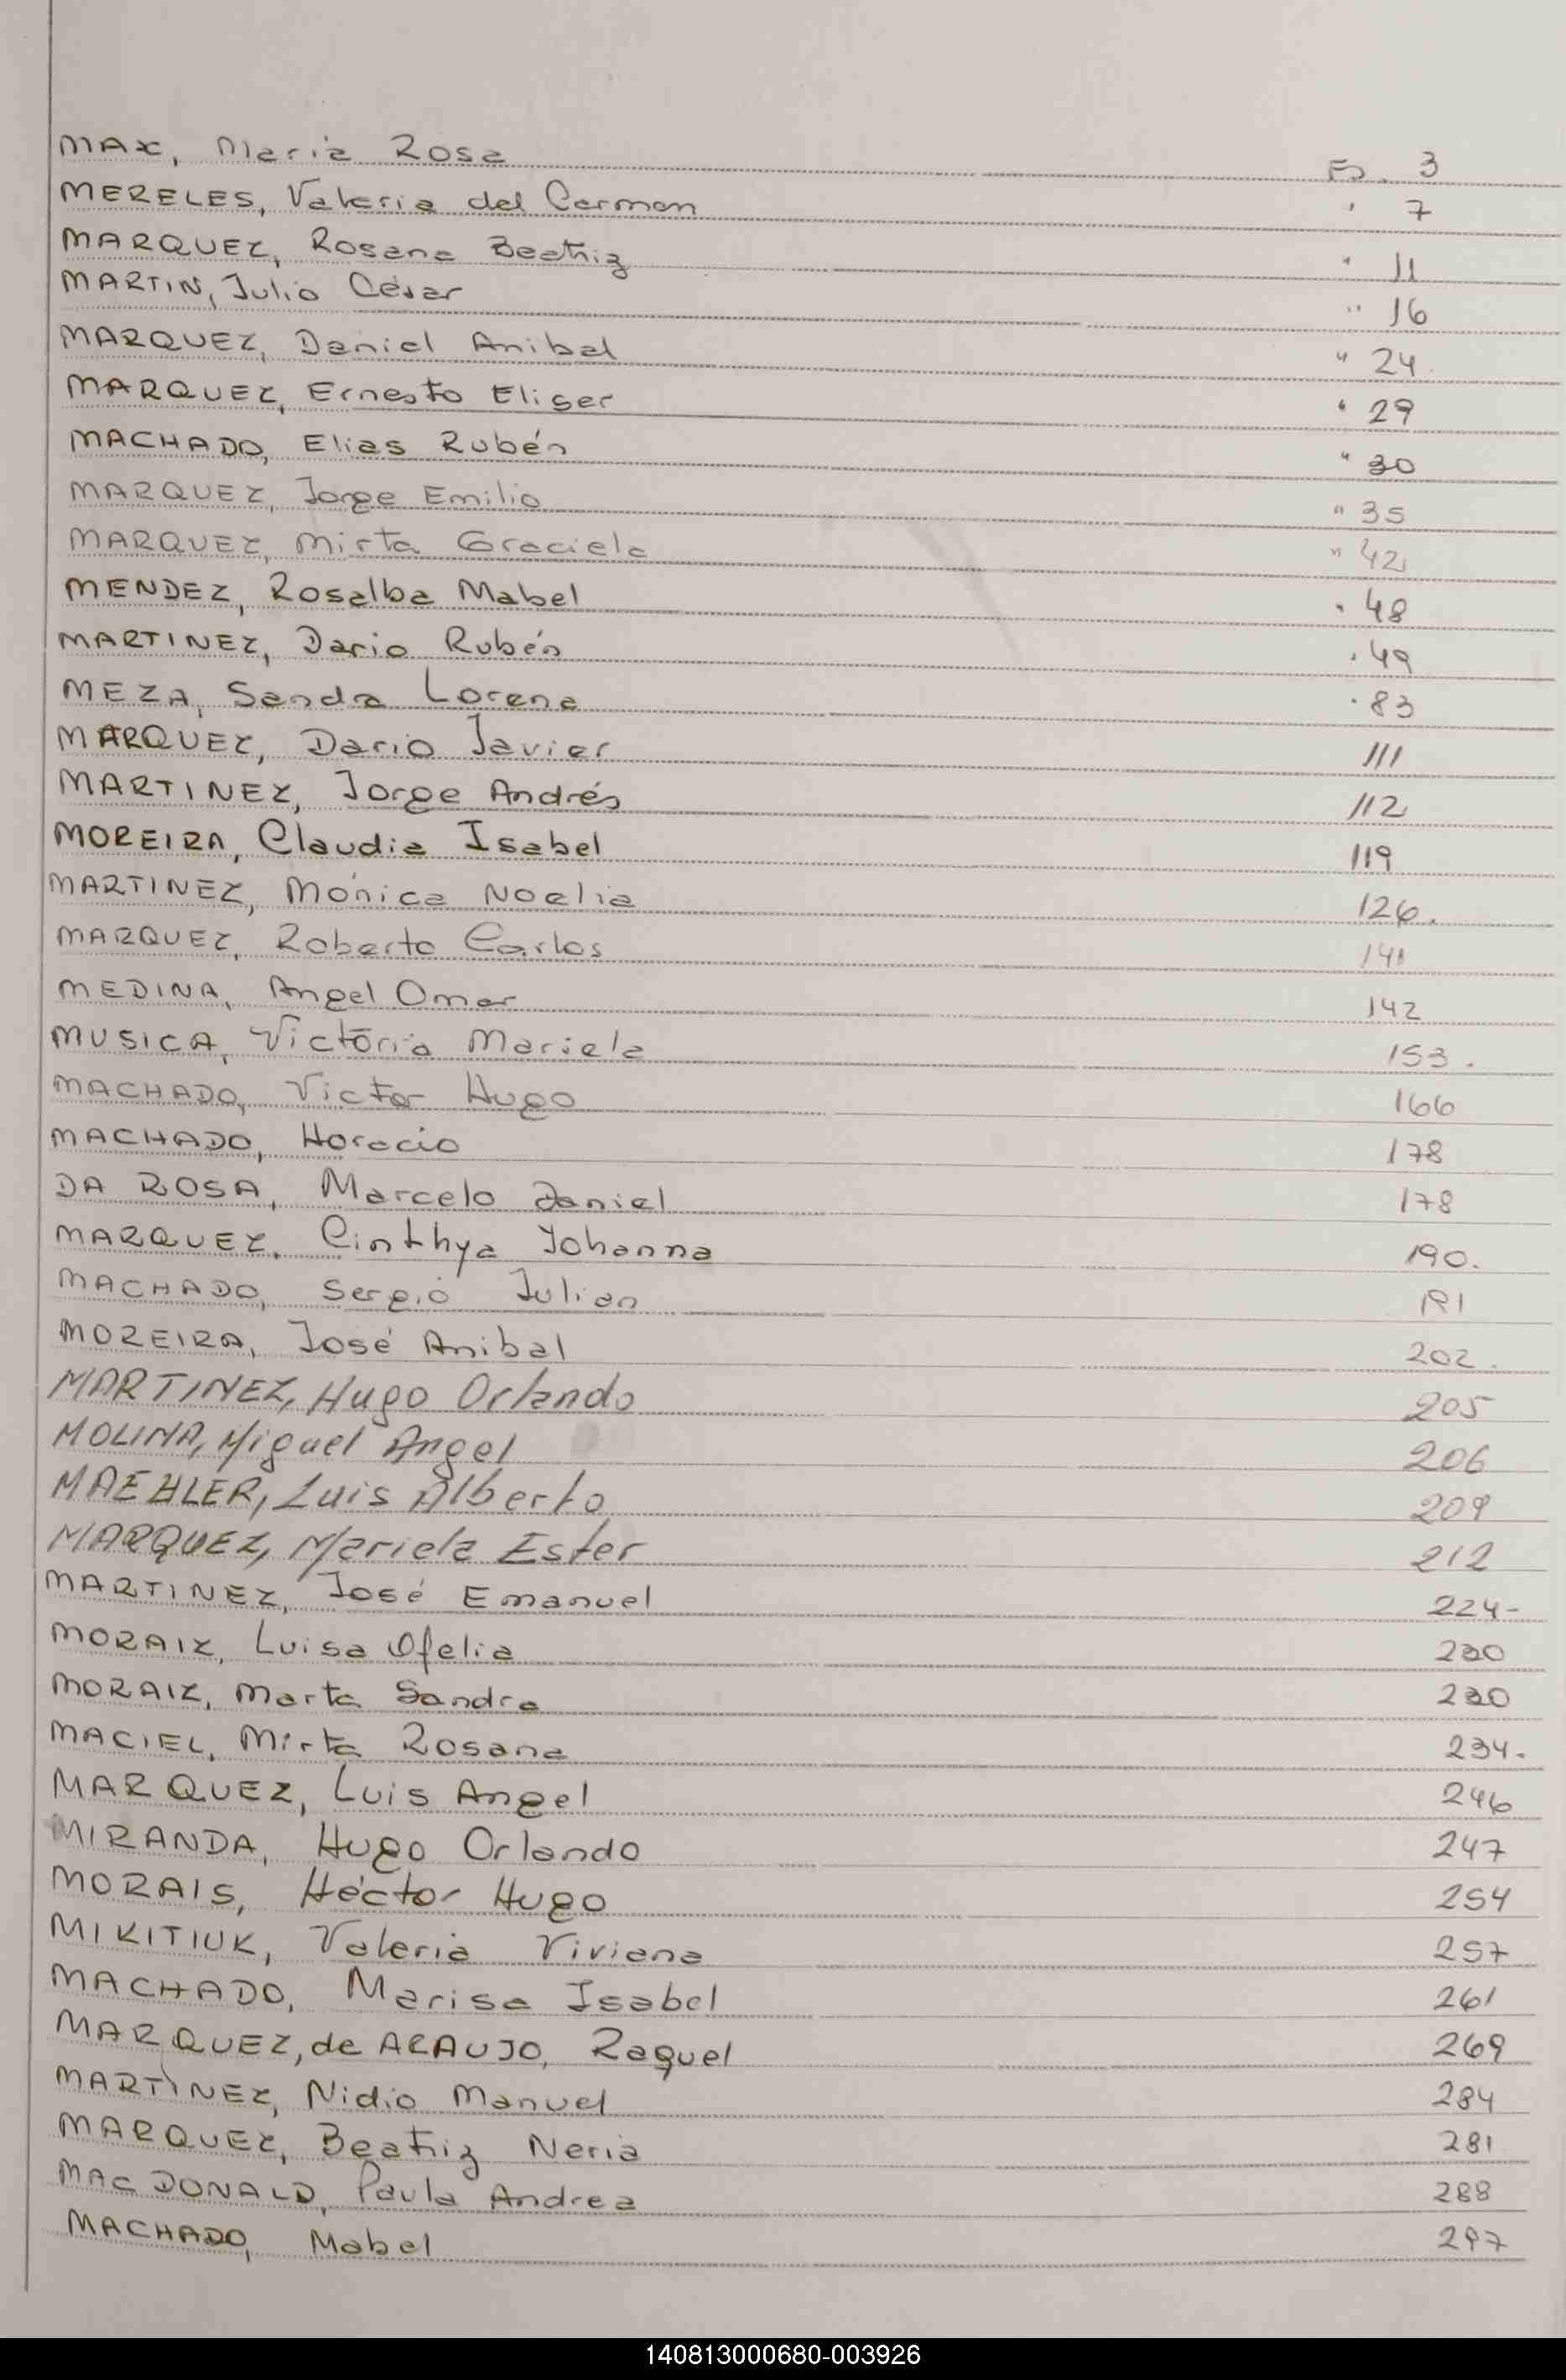 MAX, Maria Rosa Fo. 3
MERELES, Valeria del Carmen " 7
MARQUEZ, Rosana Beatriz " 11
MARTIN, Julio César " 16
MARQUEZ, Daniel Anibal " 24
MARQUEZ, Ernesto Eliser " 29
MACHADO, Elias Rubén " 30
MARQUEZ, Jorge Emilio " 35
MARQUEZ, Mirta Graciela " 42
MENDEZ, Rosalba Mabel " 48
MARTINEZ, Dario Rubén " 49
MEZA, Sandra Lorena " 83
MARQUEZ, Dario Javier 111
MARTINEZ, Jorge Andrés 112
MOREIRA, Claudia Isabel 119
MARTINEZ, Mónica Noelia 126.
MARQUEZ, Roberto Carlos 141
MEDINA, Angel Omar 142
MUSICA, Victoria Mariela 153.
MACHADO, Victor Hugo 166
MACHADO, Horacio 178
DA ROSA, Marcelo Daniel 178
MARQUEZ, Cinthya Yohanna 190.
MACHADO, Sergio Julian 191
MOREIRA, José Anibal 202.
MARTINEZ, Hugo Orlando 205
MOLINA, Miguel Angel 206
MAEHLER, Luis Alberto 209
MARQUEZ, Mariela Ester 212
MARTINEZ, José Emanuel 224-
MORAIZ, Luisa Ofelia 230
MORAIZ, Marta Sandra 230
MACIEL, Mirta Rosana 234.
MARQUEZ, Luis Angel 246
MIRANDA, Hugo Orlando 247
MORAIS, Héctor Hugo 254
MIKITIUK, Valeria Viviana 257
MACHADO, Marisa Isabel 261
MARQUEZ, de ARAUJO, Raquel 269
MARTINEZ, Nidio Manuel 284
MARQUEZ, Beatriz Neria 281
MAC DONALD, Paula Andrea 288
MACHADO, Mabel 297
140813000680-003926